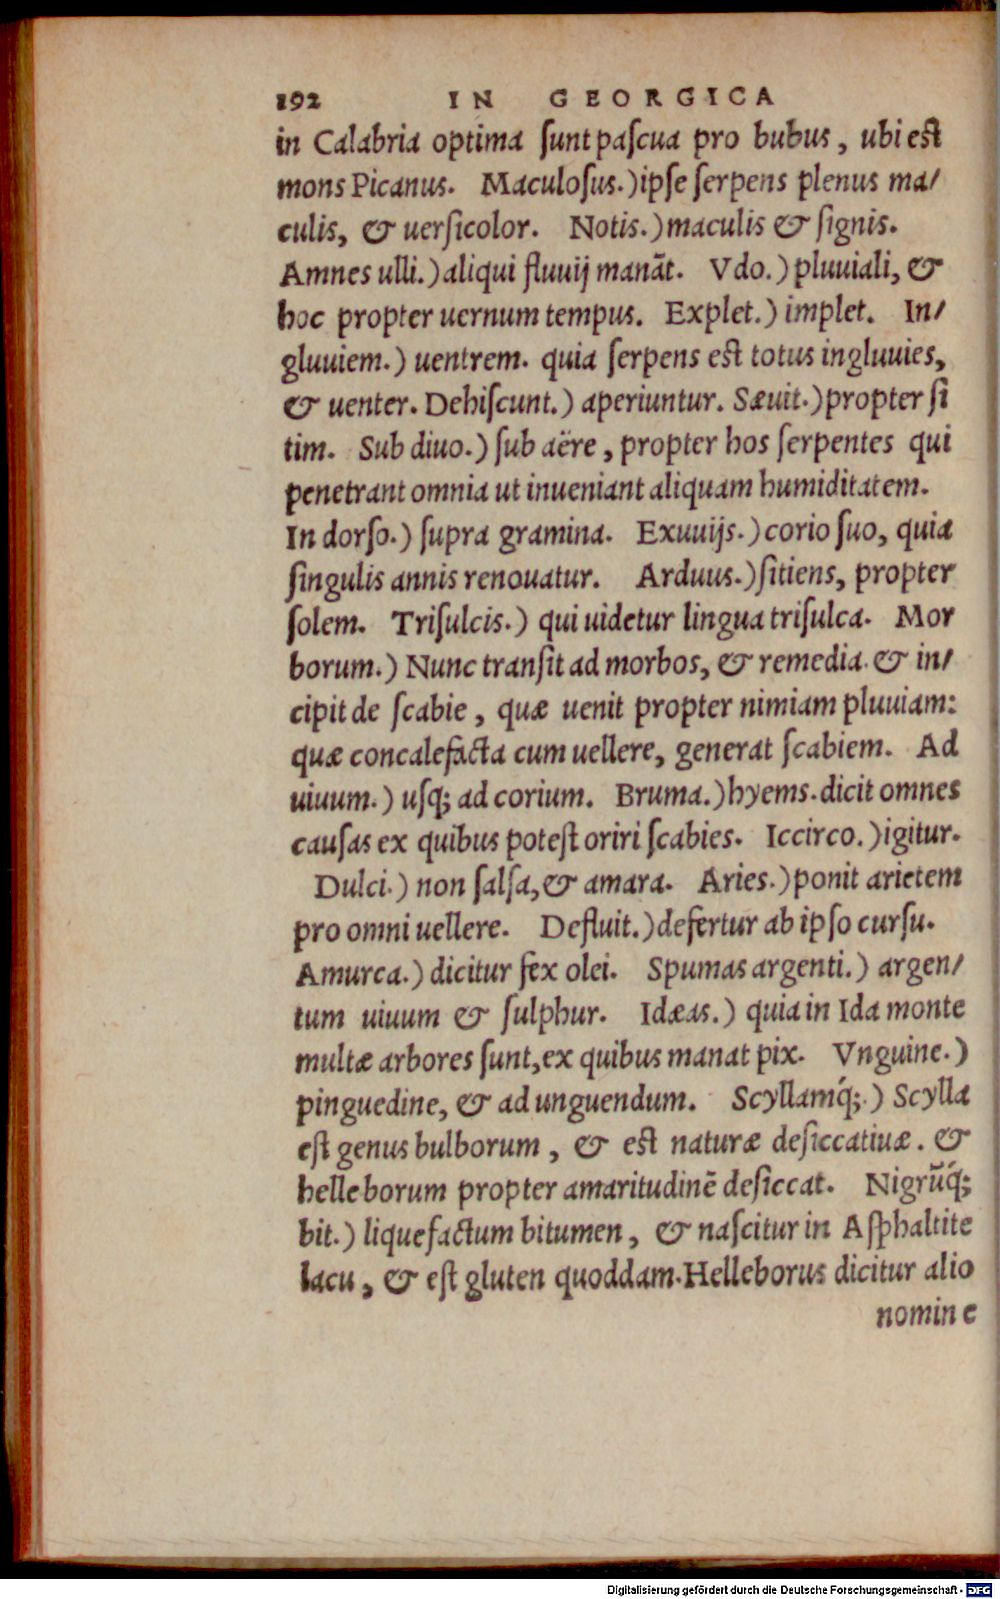 192 IN GEORGICA
in Calabria optima ſunt paſcua pro bubus, ubi eſt
mons Picanus. Maculoſus.) ipſe ſerpens plenus ma/
culis, & uerſicolor. Notis.) maculis & ſignis.
Amnes ulli.) aliqui fluuij manāt. Vdo.) pluuiali, &
hoc propter uernum tempus. Explet.) implet. In/
gluuiem.) uentrem. quia ſerpens eſt totus ingluuies,
& uenter. Dehiſcunt.) aperiuntur. Sæuit.) propter ſi
tim. Sub diuo.) ſub aëre, propter hos ſerpentes qui
penetrant omnia ut inueniant aliquam humiditatem.
In dorſo.) ſupra gramina. Exuuijs.) corio ſuo, quia
ſingulis annis renouatur. Arduus.) ſitiens, propter
ſolem. Triſulcis.) qui uidetur lingua triſulca. Mor
borum.) Nunc tranſit ad morbos, & remedia. & in/
cipit de ſcabie, quæ uenit propter nimiam pluuiam:
quæ concalefacta cum uellere, generat ſcabiem. Ad
uiuum.) uſq; ad corium. Bruma.) hyems. dicit omnes
cauſas ex quibus poteſt oriri ſcabies. Iccirco.) igitur.
Dulci.) non ſalſa, & amara. Aries.) ponit arietem
pro omni uellere. Defluit.) defertur ab ipſo curſu.
Amurca.) dicitur fex olei. Spumas argenti.) argen/
tum uiuum & ſulphur. Idæas.) quia in Ida monte
multæ arbores ſunt, ex quibus manat pix. Vnguine.)
pinguedine, & ad unguendum. Scyllamq́;.) Scylla
eſt genus bulborum, & eſt naturæ deſiccatiuæ. &
helleborum propter amaritudinē deſiccat. Nigrūq́;
bit.) liquefactum bitumen, & naſcitur in Aſphaltite
lacu, & eſt gluten quoddam. Helleborus dicitur alio
nomine
Digitalisierung gefördert durch die Deutsche Forschungsgemeinschaft - DFG